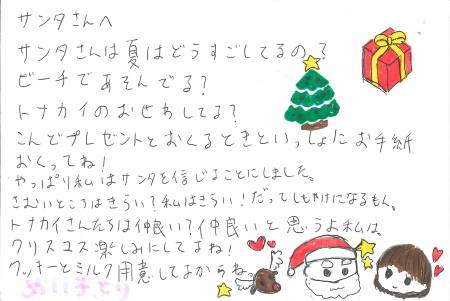 サンタさんへ
サンタさんは夏はどうすごしてるの?
ビーチであそんでる?
トナカイのおせわしてる?
こんどプレゼントとおくるときといっしょにお手紙
おくってね!
やっぱり私はサンタを信じることにしました。
さむいところはきらい?私はきらい!だってしもやけになるもん。
トナカイさんたちは仲良い?仲良いと思うよ私は。
クリスマス楽しみにしてるね!
クッキーとミルク用意してるからね。
めい子より